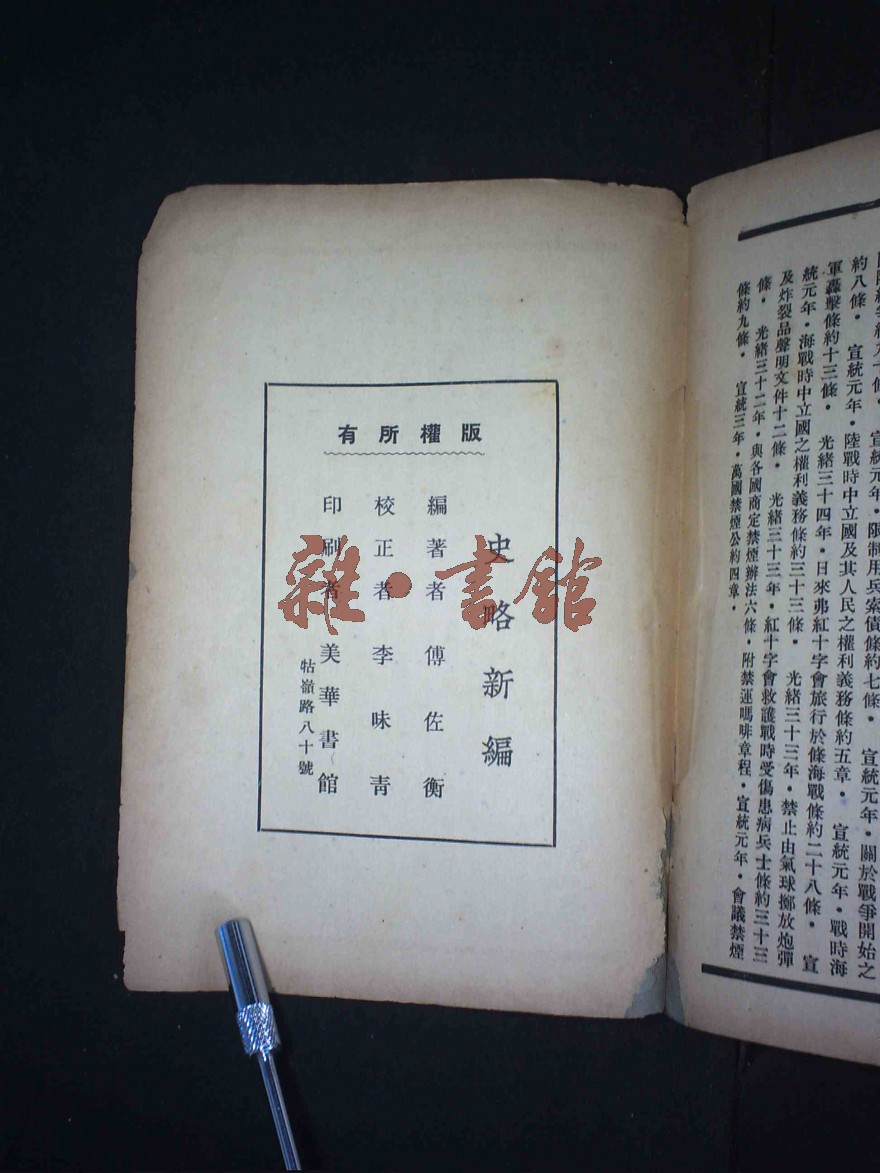 約八條・　宣統元年・陸戰時中立國及其人民之權利義務條約五章・　宣統元年・戰時海
軍轟擊條約十三條・　光緒三十四年・日來弗紅十字會旅行於條海戰條約二十八條・　宣
統元年・海戰時中立國之權利義務條約三十三條・　光緒三十三年・禁止由氣球擲放炮彈
及炸裂品聲明文件十二條・　光緒三十三年・紅十字會救護戰時受傷患病兵士條約三十三
條・　光緒三十二年・與各國商定禁煙辦法六條・附禁運嗎啡章程・宣統元年・會議禁煙
條約九條・　宣統三年・萬國禁煙公約四章・
版權所有
史略新編
編著者 傅佐衡
校正者 李味青
印刷者 美華書館
牯嶺路八十號
雜・書館